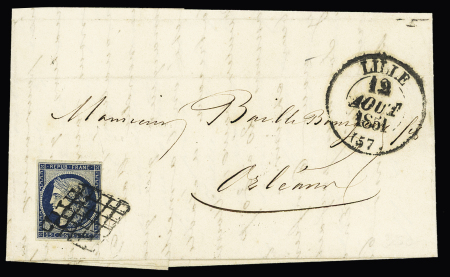 LILLE
12
AOUT
1851
(57)
Monsieur Baille
Orléans
REPUB. FRANC.